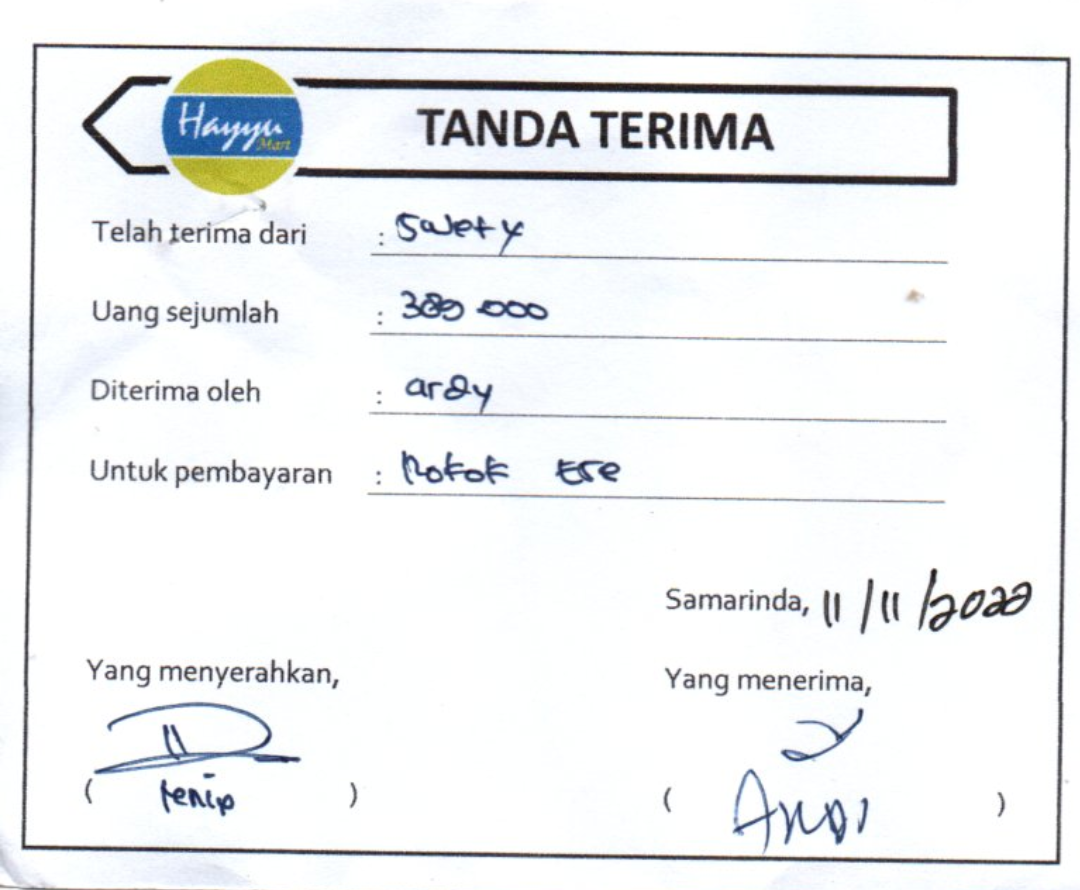 Hayyu
Mart
TANDA TERIMA
Telah terima dari : Swety
Uang sejumlah : 389.000
Diterima oleh : ardy
Untuk pembayaran : Rokok Ese
Samarinda, 11/11/2022
Yang menyerahkan, Yang menerima,
( ) ( )